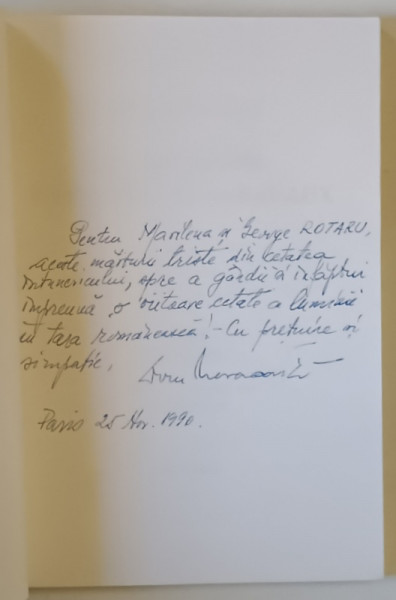 Pentru Marilena și George ROTARU,
aceste mărturii triste din cetatea
întunericului, spre a gândi și înfăptui
împreună o viitoare cetate a luminii
în țara românească! - Cu prețuire și
simpatie,
Paris 25 Nov. 1990.